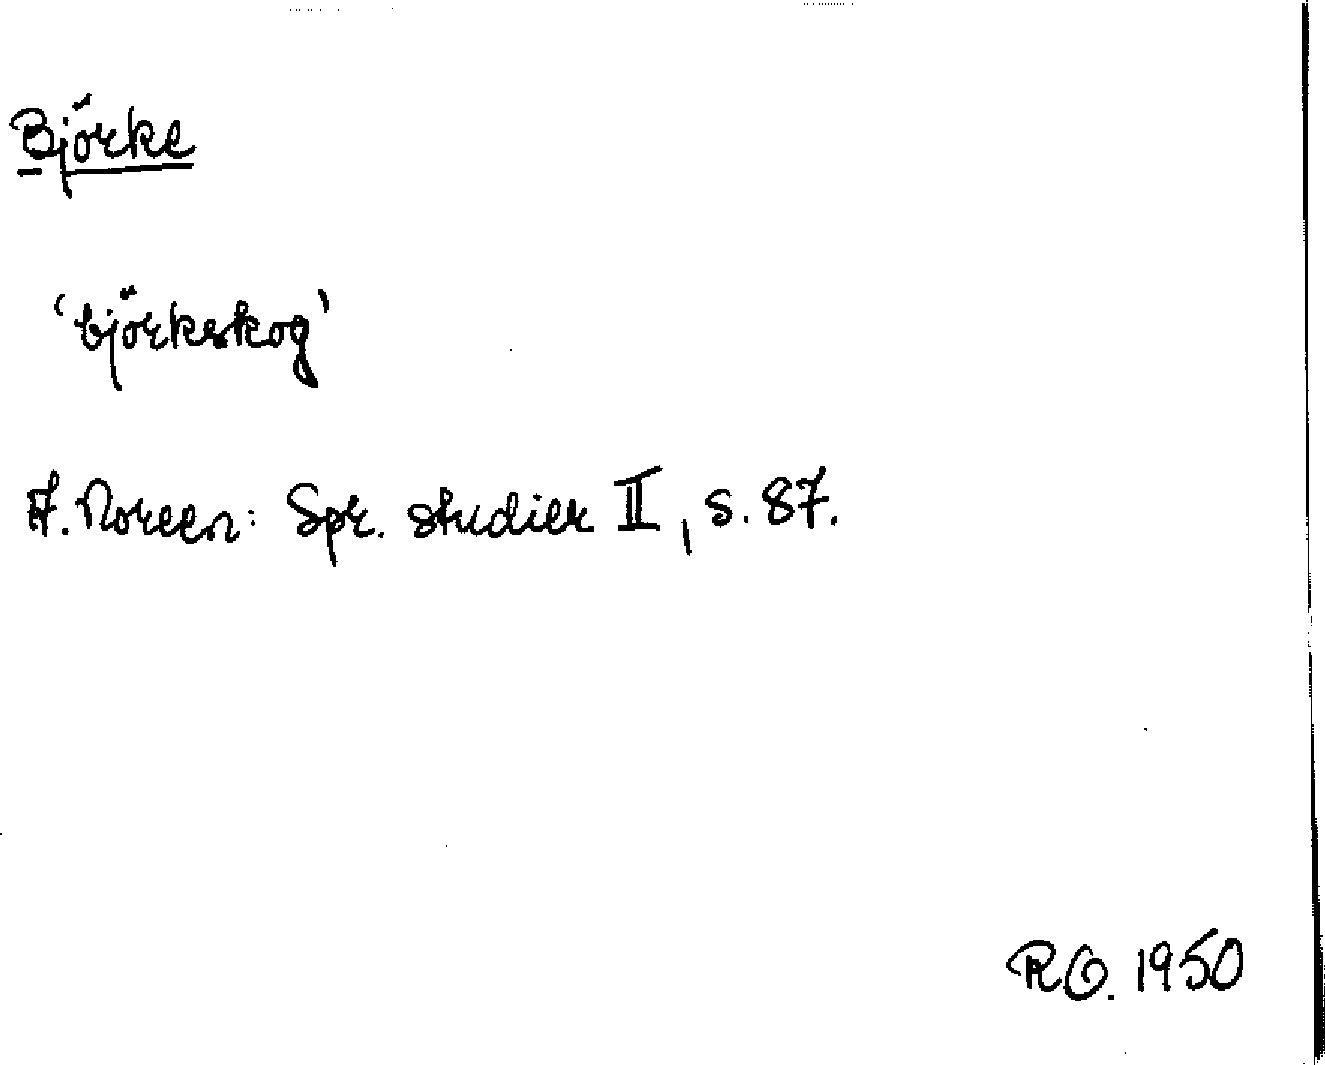 Björke
'björkskog'
A. Noreen: Spr. studier II, s. 87.
RO. 1950